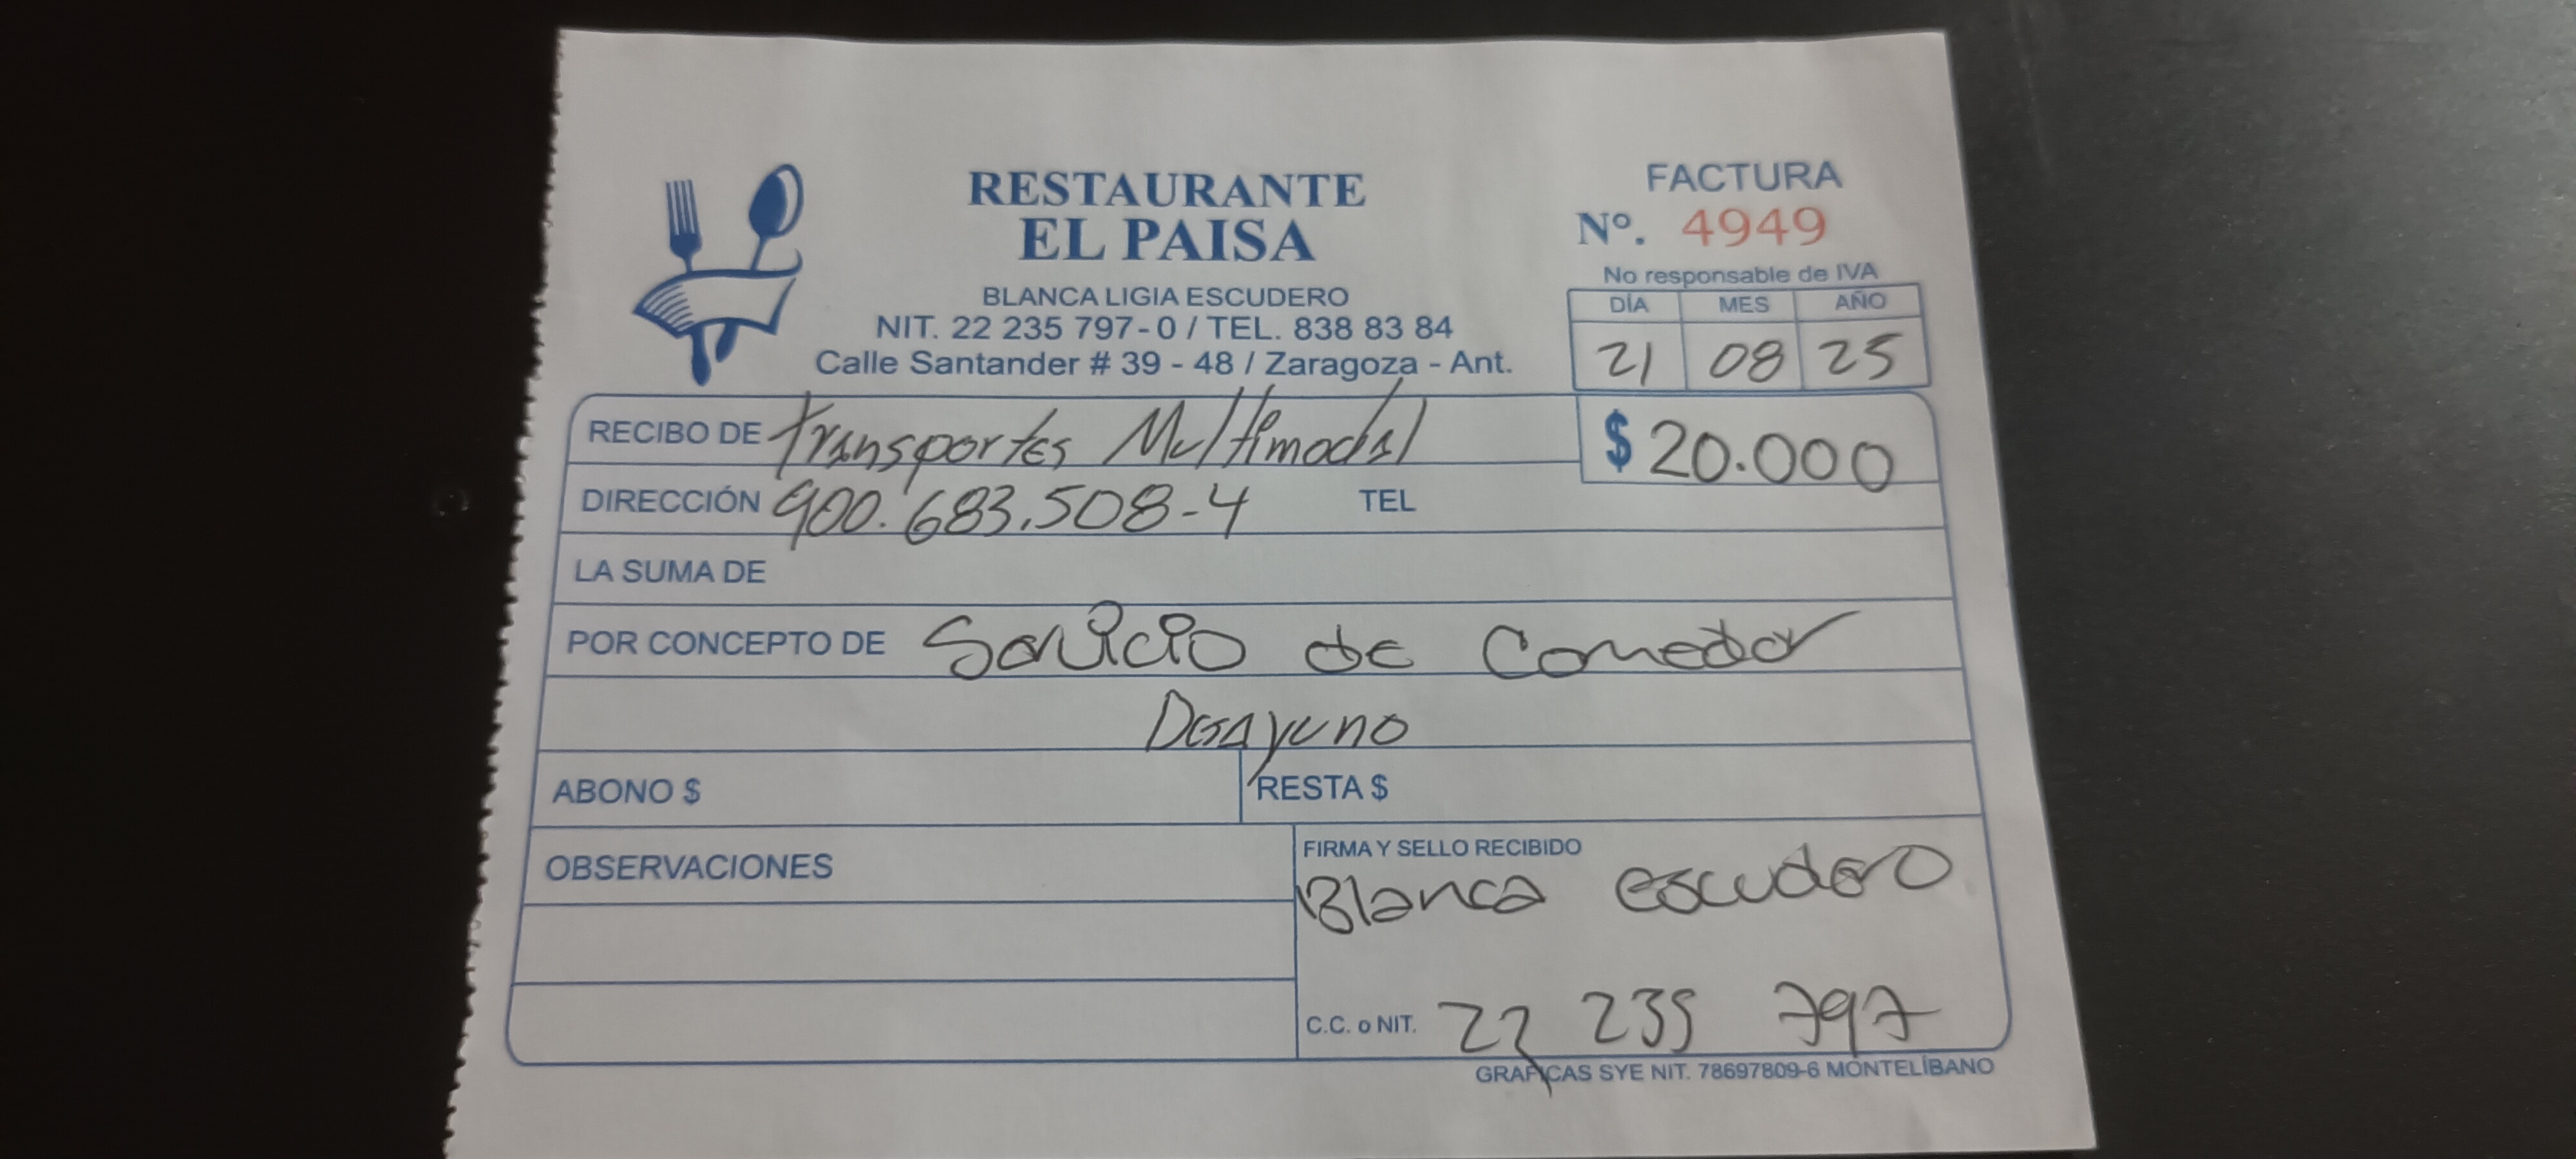 RESTAURANTE
EL PAISA
BLANCA LIGIA ESCUDERO
NIT. 22 235 797-0 / TEL. 838 83 84
Calle Santander # 39 - 48 / Zaragoza - Ant.
FACTURA
Nº. 4949
No responsable de IVA
DÍA MES AÑO
21 08 25
RECIBO DE Transportes Multimodal
$ 20.000
DIRECCIÓN 900.683.508-4 TEL
LA SUMA DE
POR CONCEPTO DE Servicio de Comedor
Desayuno
ABONO $ RESTA $
OBSERVACIONES
FIRMA Y SELLO RECIBIDO
Blanca escudero
C.C. o NIT. 22 235 797
GRAFICAS SYE NIT. 78697809-6 MONTELÍBANO